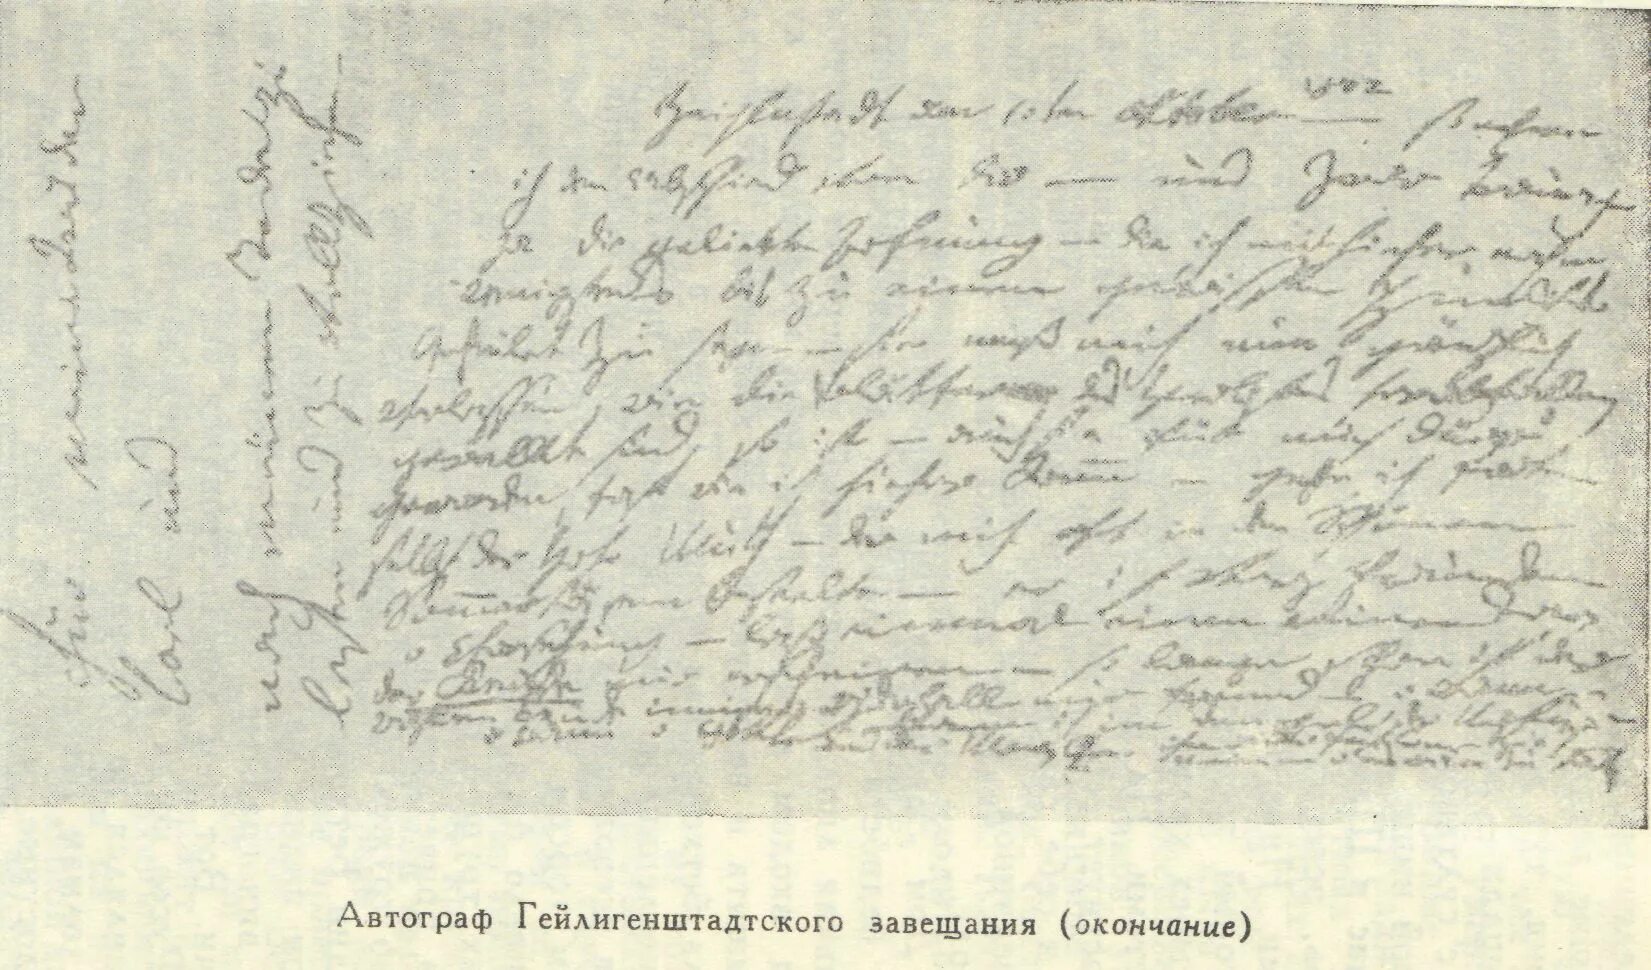 für meine Brüder
Carl und
nach meinem Tode zu
lesen und zu vollziehen —
Heiglnstadt am 10ten Oktober 1802 — so nehme
ich den Abschied von dir — und zwar traurig
ja die geliebte Hofnung — die ich mit hieher nahm
wenigstens bis zu einem gewissen Punkte
geheilet zu seyn — sie muß mich nun gänzlich
verlassen, wie die blätter des Herbstes herabfallen
gewelkt sind, so ist — auch sie für mich dürr
geworden, fast wie ich hieher kamm — gehe ich fort
selbst der Hohe Muth — der mich oft in den Schönen
Sommertägen beseelte — er ist verschwunden
o Vorsehung — laß einmal einen reinen Tag
der Freude mir erscheinen — so lange schon ist der
wahren Freude inniger widerhall mir fremd — o wann —
o wann o Gottheit
Автограф Гейлигенштадтского завещания (окончание)